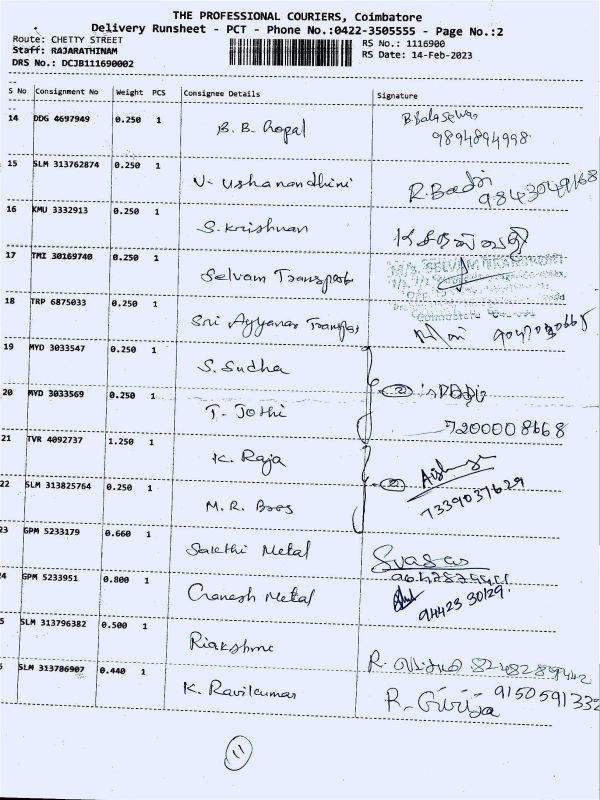 THE PROFESSIONAL COURIERS, Coimbatore
Delivery Runsheet - PCT - Phone No.:0422-3505555 - Page No.:2
Route: CHETTY STREET
RS No.: 1116900
Staff: RAJARATHINAM
RS Date: 14-Feb-2023
DRS No.: DCJB111690002
S No Consignment No Weight PCS Consignee Details Signature
14 DDG 4697949 0.250 1 B. B. Gopal
9894894998
15 SLM 313762874 0.250 1 V. Ushanandhini R. Badri
9843049168
16 KMU 3332913 0.250 1 S. Krishnan
17 TMI 30169740 0.250 1 Selvam Transport M/s. SELVAM TRANSPORT
18 TRP 6875033 0.250 1 Sri Ayyanar Transport
19 MYD 3033547 0.250 1 S. Sudha
20 MYD 3033569 0.250 1 T. Jothi 7200008668
21 TVR 4092737 1.250 1 K. Raja
22 SLM 313825764 0.250 1 M. R. Bros 7339037629
23 GPM 5233179 0.660 1 Sakthi Metal
4 GPM 5233951 0.800 1 Ganesh Metal 94423 30129.
5 SLM 313796382 0.500 1 R. 8248289442
SLM 313786907 0.440 1 K. Ravikumar R. Girija 9150591332
11